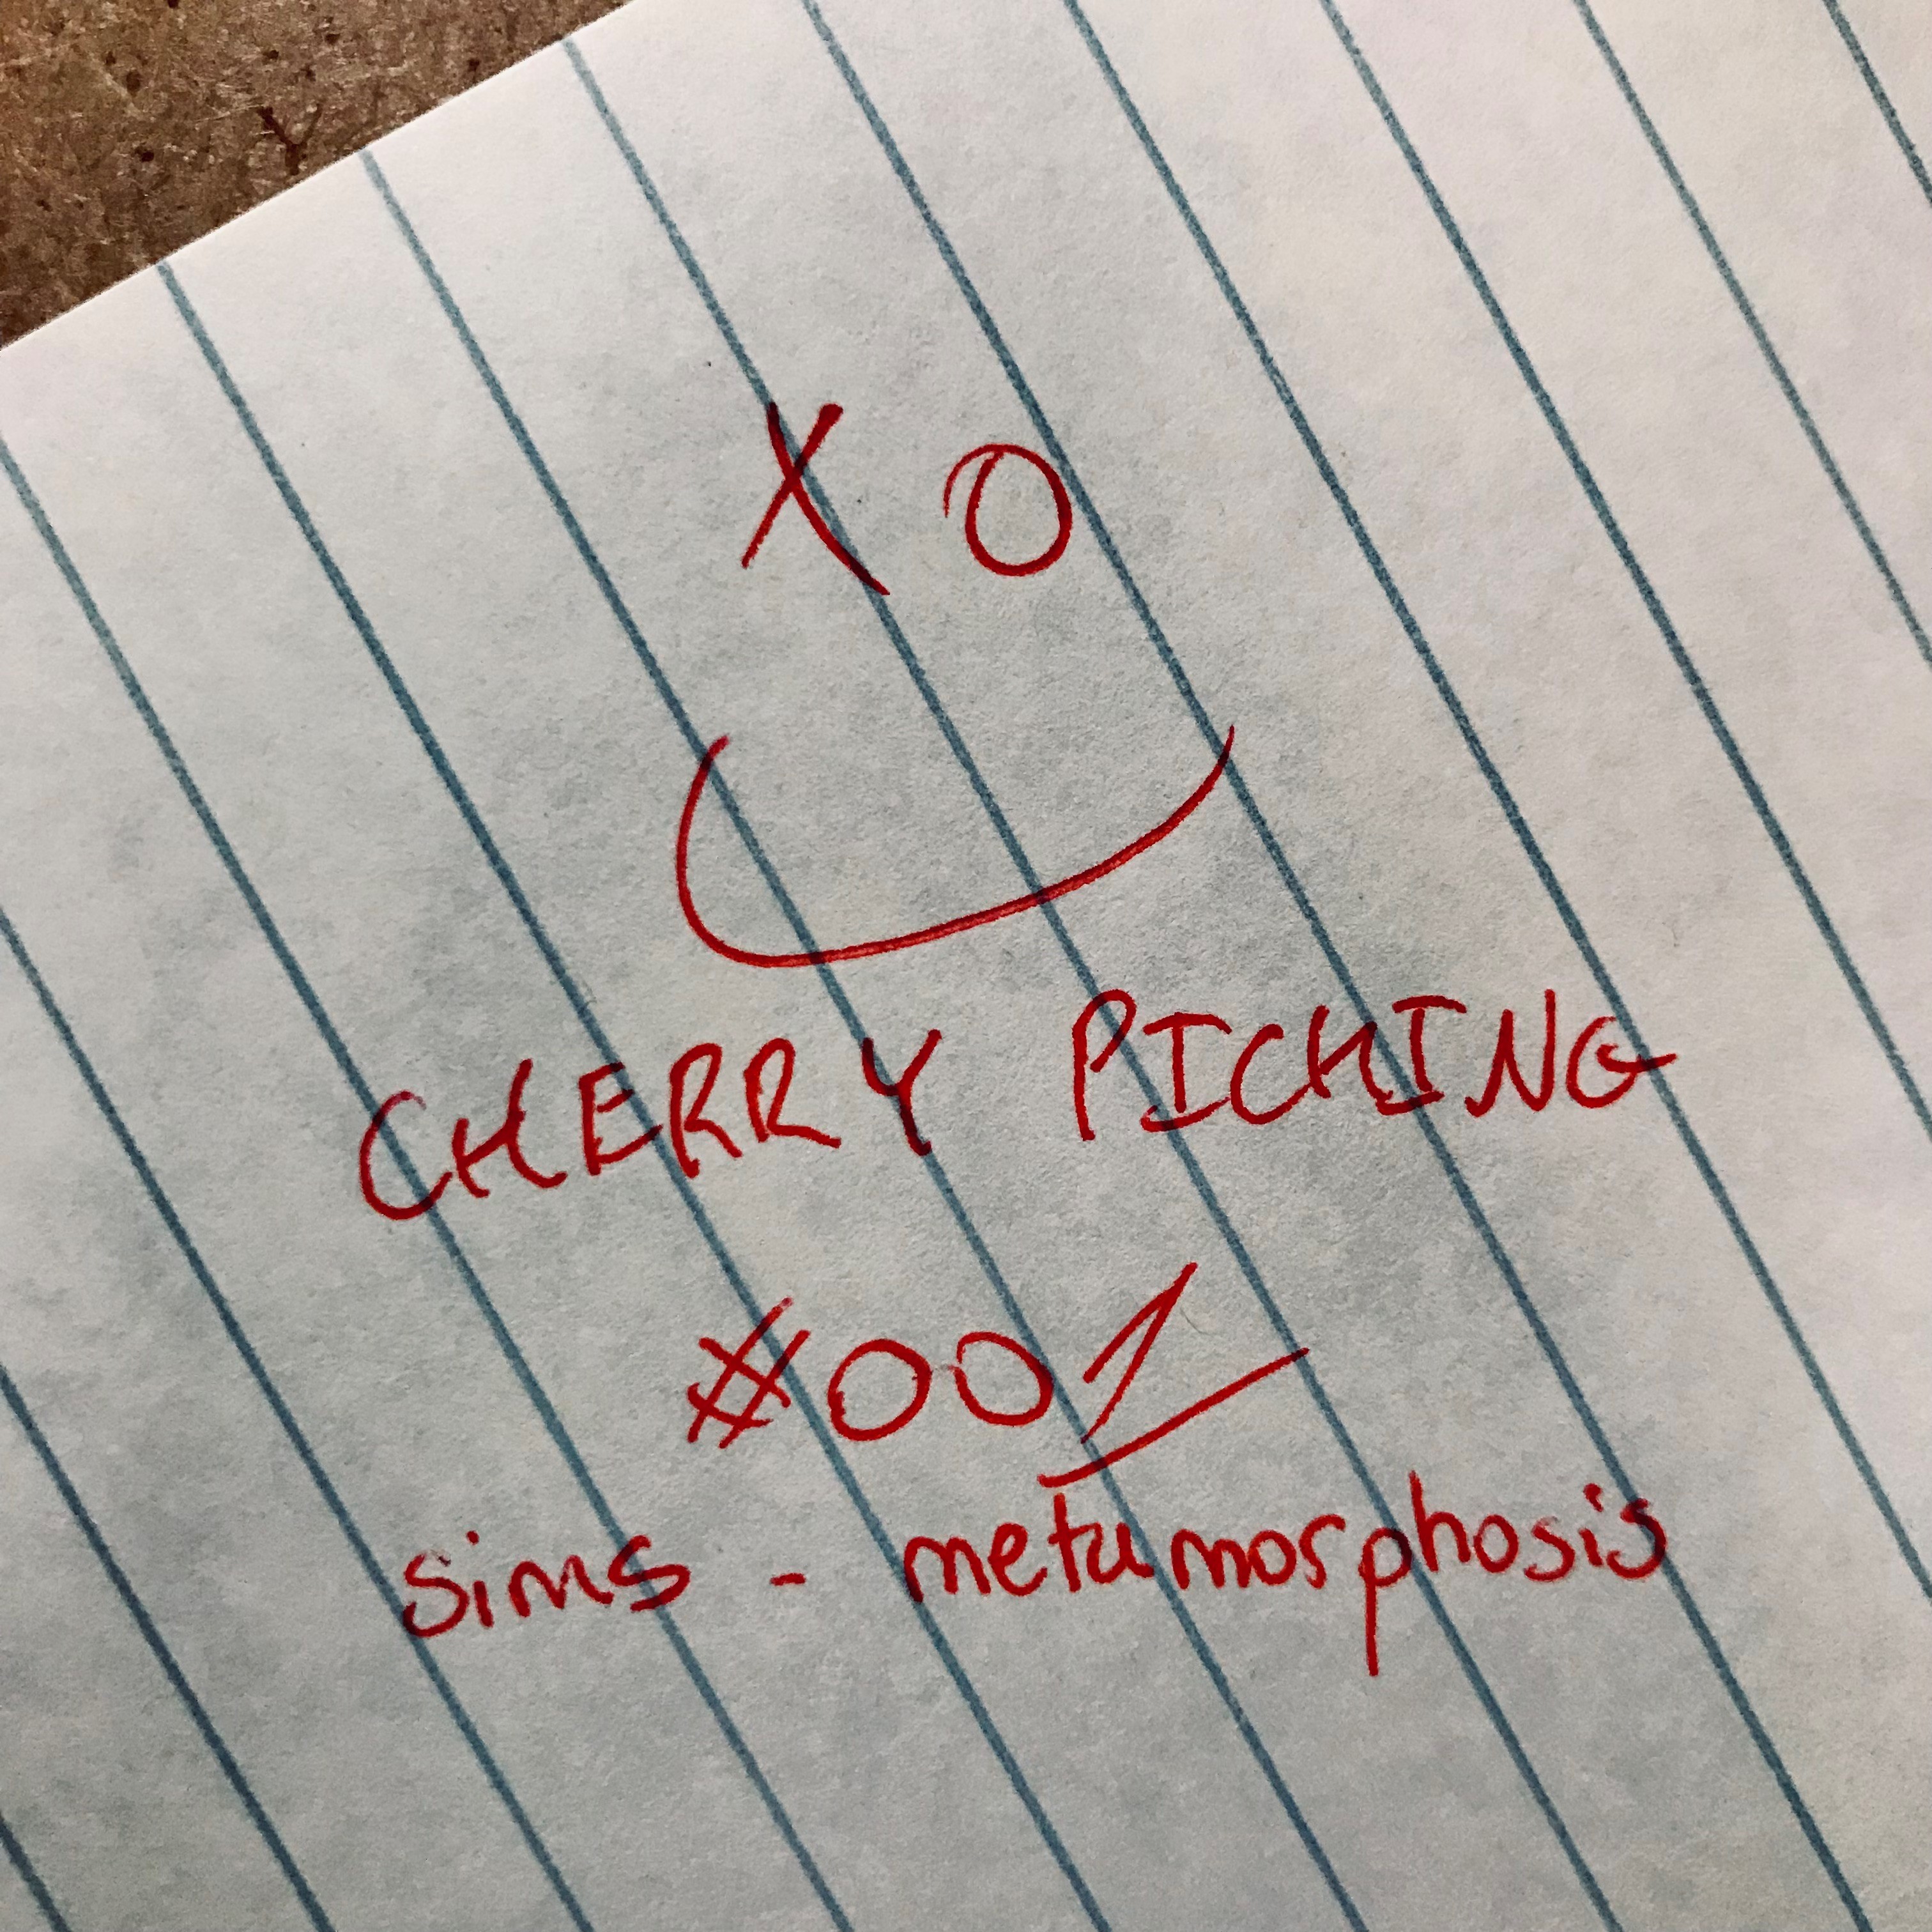 X O
CHERRY PICKING
#001
sims - metamorphosis